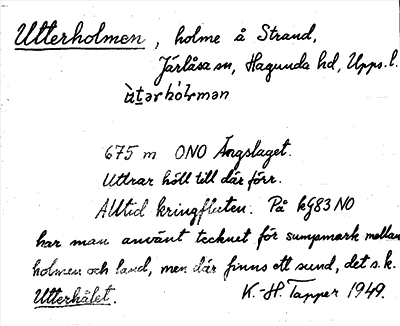 Utterholmen, holme å Strand,
Järlåsa sn, Hagunda hd, Upps. l.
ùtərhólmən
675 m ONO Ängslaget.
Uttrar höll till där förr.
Alltid kringfluten. På kg83 NO
har man använt tecknet för sumpmark mellan
holmen och land, men där finns ett sund, det s.k.
Utterhålet. K.-H. Tapper 1949.